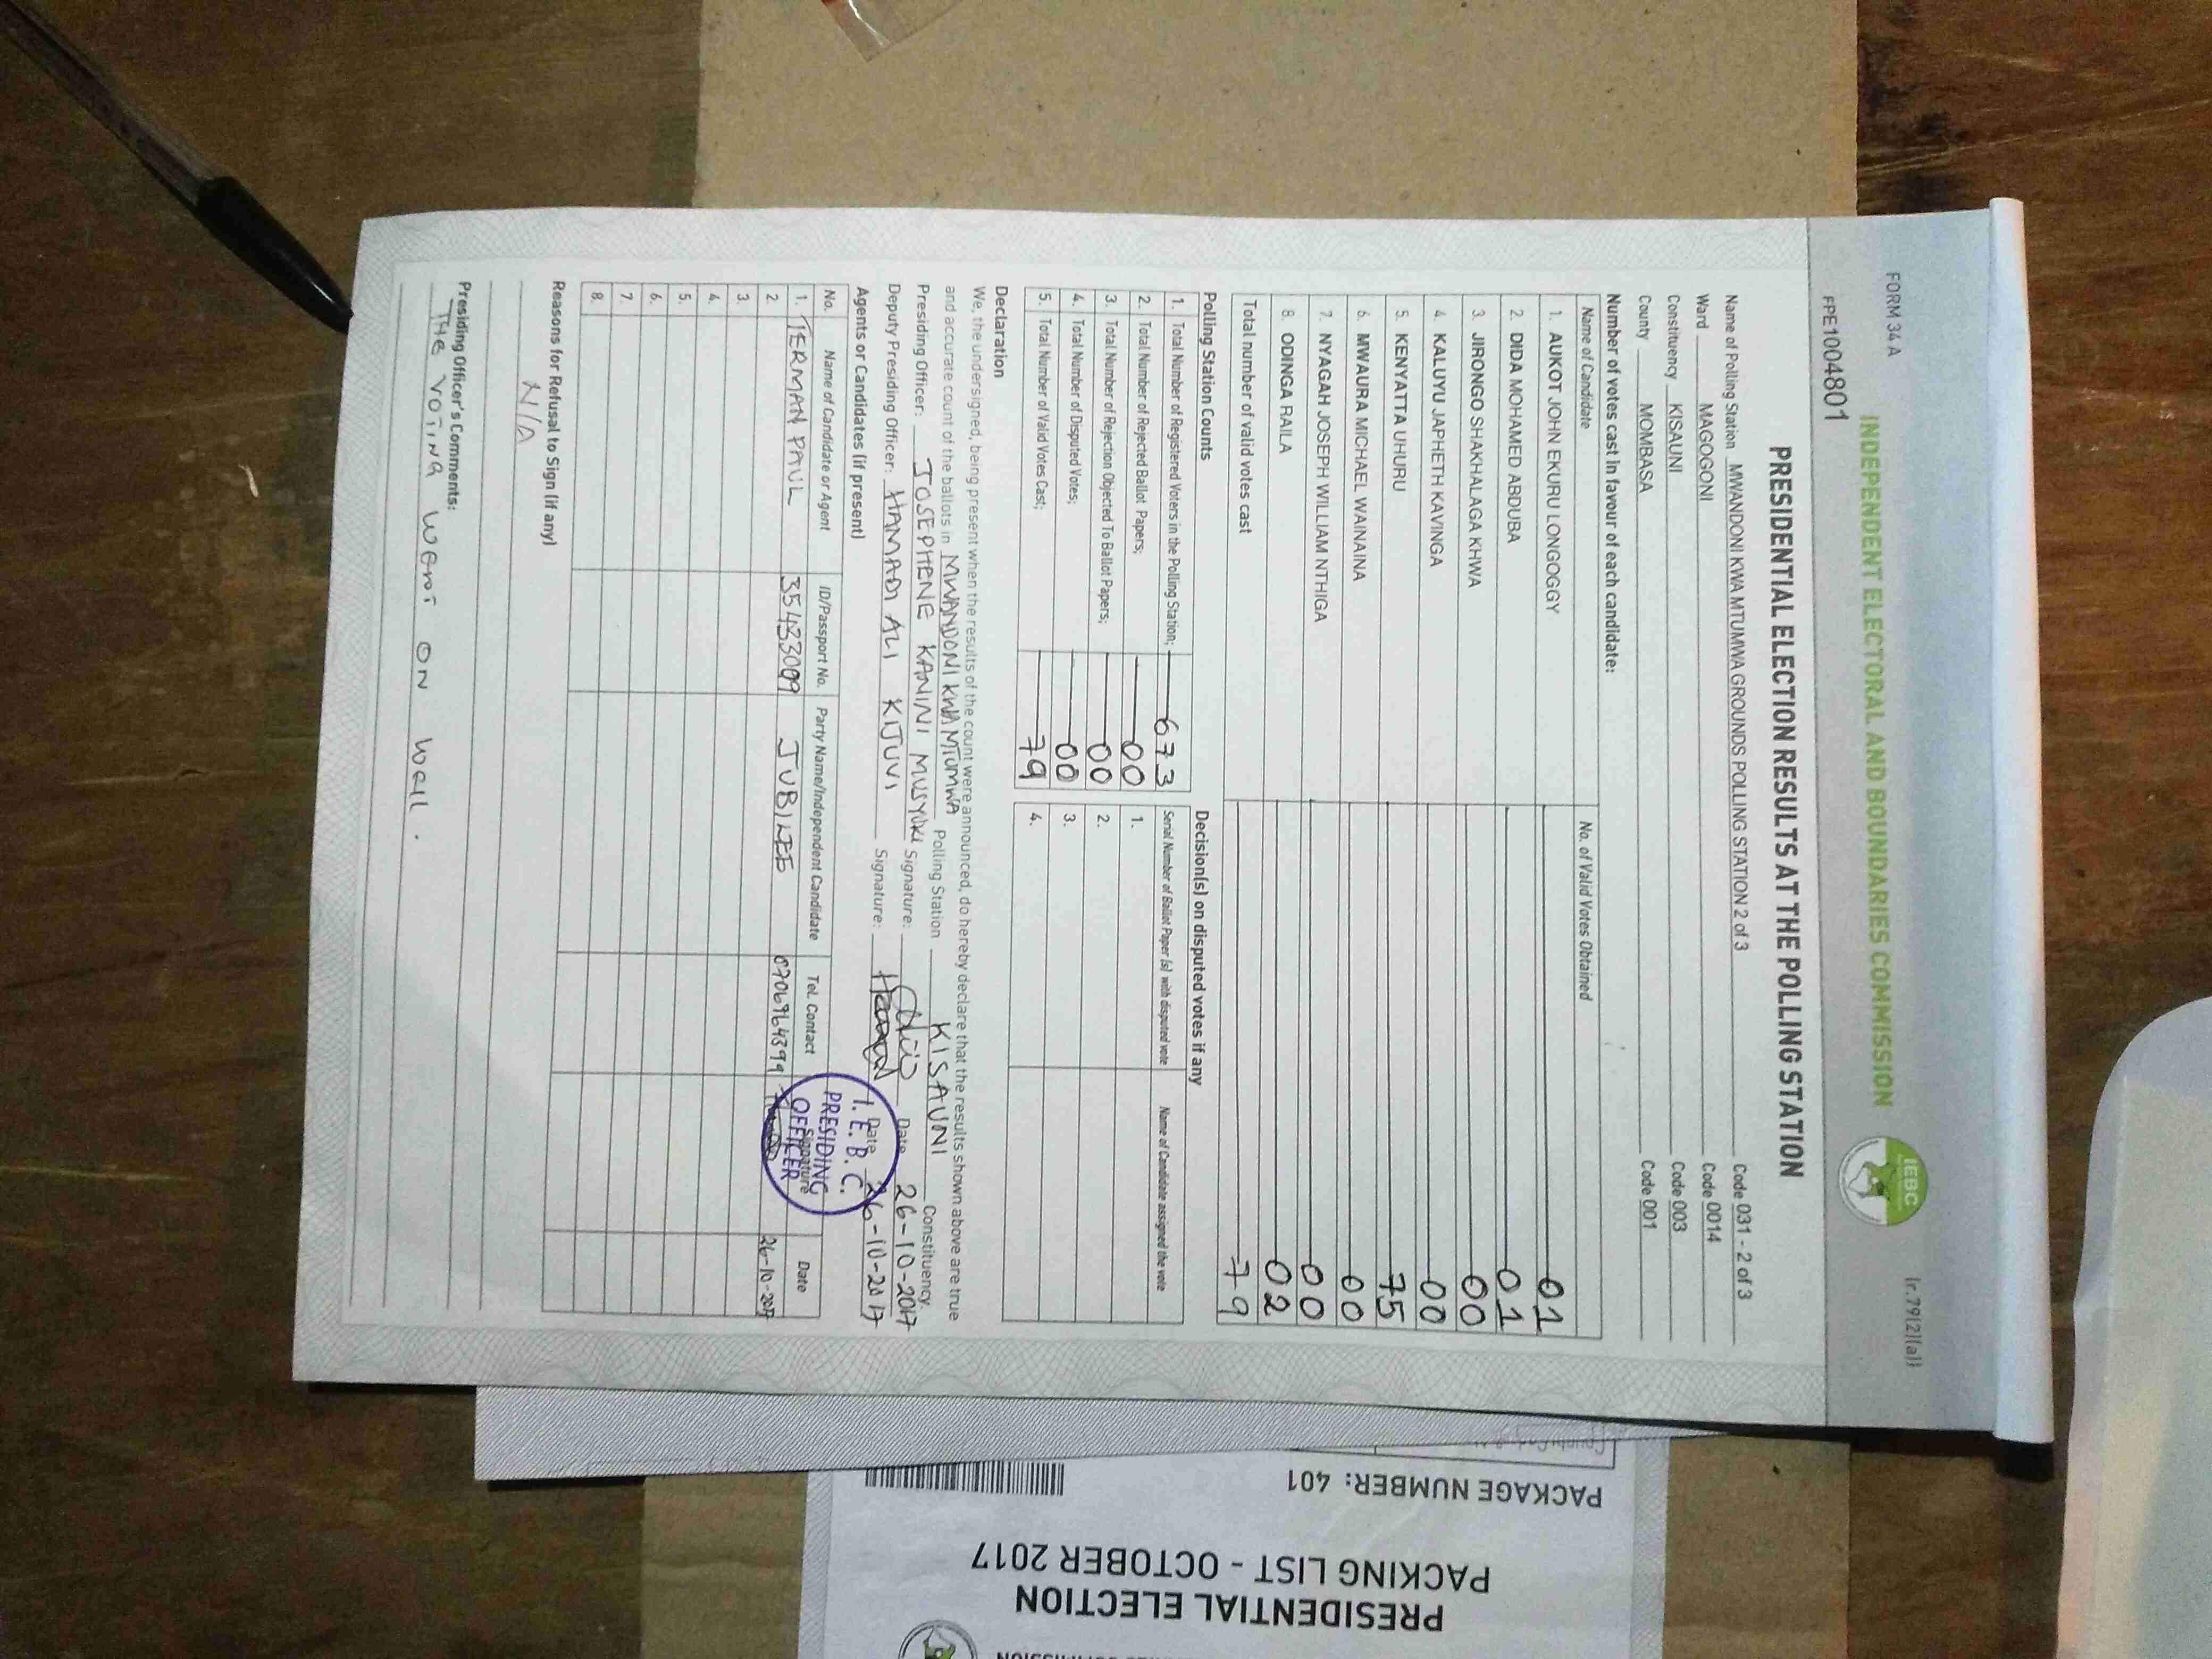 FORM 34 A
(r.79(2)(a))
INDEPENDENT ELECTORAL AND BOUNDARIES COMMISSION
IEBC
FPE1004801
PRESIDENTIAL ELECTION RESULTS AT THE POLLING STATION
Name of Polling Station MWANDONI KWA MTUMWA GROUNDS POLLING STATION 2 of 3 Code 031 - 2 of 3
Ward MAGOGONI Code 0014
Constituency KISAUNI Code 003
County MOMBASA Code 001
Number of votes cast in favour of each candidate:
Name of Candidate No. of Valid Votes Obtained
1. AUKOT JOHN EKURU LONGOGGY 01
2. DIDA MOHAMED ABDUBA 01
3. JIRONGO SHAKHALAGA KHWA 00
4. KALUYU JAPHETH KAVINGA 00
5. KENYATTA UHURU 75
6. MWAURA MICHAEL WAINAINA 00
7. NYAGAH JOSEPH WILLIAM NTHIGA 00
8. ODINGA RAILA 02
Total number of valid votes cast 79
Polling Station Counts
1. Total Number of Registered Voters in the Polling Station; 673
2. Total Number of Rejected Ballot Papers; 00
3. Total Number of Rejection Objected To Ballot Papers; 00
4. Total Number of Disputed Votes; 00
5. Total Number of Valid Votes Cast; 79
Decision(s) on disputed votes if any
Serial Number of Ballot Paper (s) with disputed vote Name of Candidate assigned the vote
1.
2.
3.
4.
Declaration
We, the undersigned, being present when the results of the count were announced, do hereby declare that the results shown above are true
and accurate count of the ballots in MWANDONI KWA MTUMWA Polling Station KISAUNI Constituency.
Presiding Officer: JOSEPHENE KANINI MUSYOKI Signature: Date 26-10-2017
Deputy Presiding Officer: HAMADI ALI KIJUVI Signature: Date 26-10-2017
Agents or Candidates (if present)
No. Name of Candidate or Agent ID/Passport No. Party Name/Independent Candidate Tel. Contact Signature Date
1. TERMAN PAUL 35433009 JUBILEE 0706964399 26-10-2017
2.
3.
4.
5.
6.
7.
8.
I.E.B.C.
PRESIDING
OFFICER
Reasons for Refusal to Sign (if any)
N/A
Presiding Officer's Comments:
THe VOTING Went ON Well.
PACKAGE NUMBER: 401
PACKING LIST - OCTOBER 2017
PRESIDENTIAL ELECTION